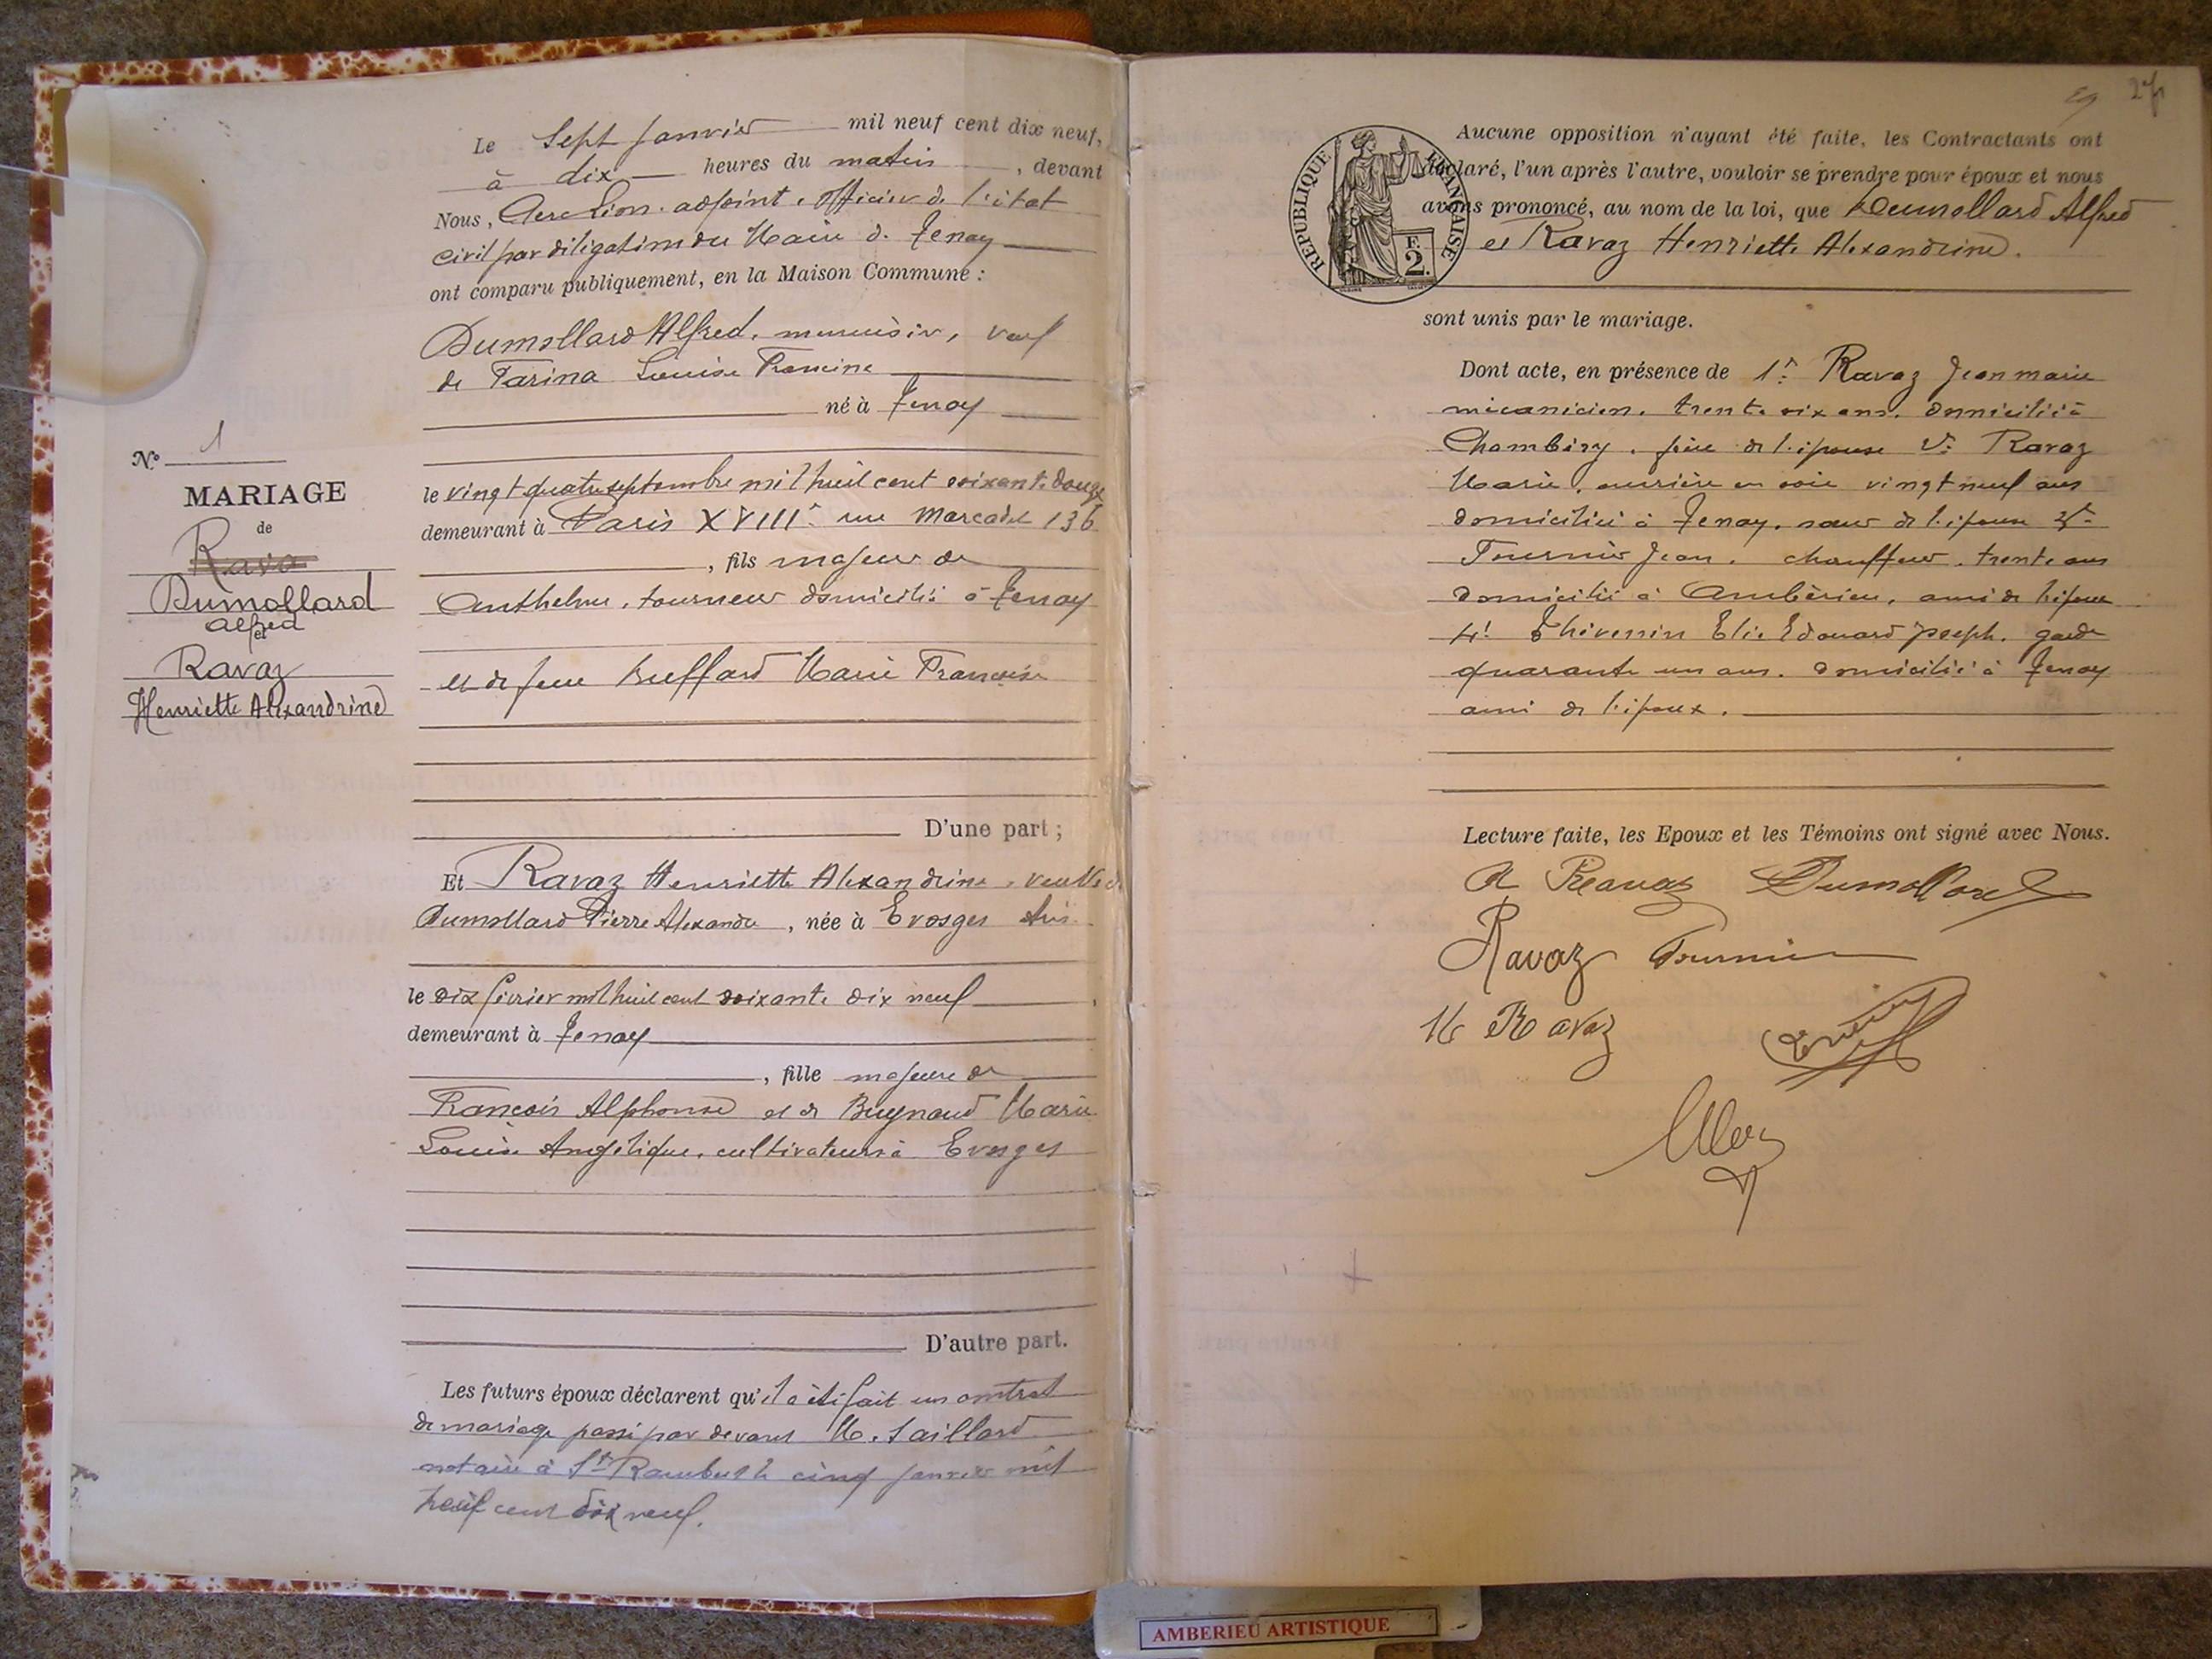 Le Sept Janvier mil neuf cent dix neuf,
à dix heures du matin, devant
Nous, adjoint, officier de l'état
civil par délégation du Maire de Tenay
ont comparu publiquement, en la Maison Commune :
Dumollard Alfred, menuisier, veuf
de Farina Louise Francine
né à Tenay
le vingt quatre septembre mil huit cent soixante douze
demeurant à Paris XVIIIe rue Marcadet 136
, fils majeur de
Anthelme, tourneur domicilié à Tenay
et de feue Buffard Marie Françoise
D'une part ;
Et Ravaz Henriette Alexandrine, veuve de
Dumollard Pierre Alexandre, née à Evosges Ain
le dix février mil huit cent soixante dix neuf
demeurant à Tenay
, fille majeure de
François Alphonse et de Buynaud Marie
Louise Angélique, cultivateurs à Evosges
D'autre part.
Les futurs époux déclarent qu'il a été fait un contrat
de mariage passé par devant M. Saillard
notaire à St Rambert le cinq janvier mil
neuf cent dix neuf.
N° 1
MARIAGE
de
Rava
Dumollard
Alfred
et
Ravaz
Henriette Alexandrine
27
RÉPUBLIQUE FRANÇAISE
F.
2.
Aucune opposition n'ayant été faite, les Contractants ont
déclaré, l'un après l'autre, vouloir se prendre pour époux et nous
avons prononcé, au nom de la loi, que Dumollard Alfred
et Ravaz Henriette Alexandrine.
sont unis par le mariage.
Dont acte, en présence de 1° Ravaz Jean marie
mécanicien, trente six ans, domicilié à
Chambéry, frère de l'épouse 2° Ravaz
Marie, ouvrière en soie vingt neuf ans
domiciliée à Tenay, sœur de l'épouse 3°
Fournier Jean, chauffeur, trente ans
domicilié à Ambérieu, ami de l'époux
4° Thévenin Elie Edouard Joseph, garde
quarante un ans, domicilié à Tenay
ami de l'époux.
Lecture faite, les Epoux et les Témoins ont signé avec Nous.
A Ravaz Dumollard
Ravaz Fournier
M Ravaz
AMBERIEU ARTISTIQUE